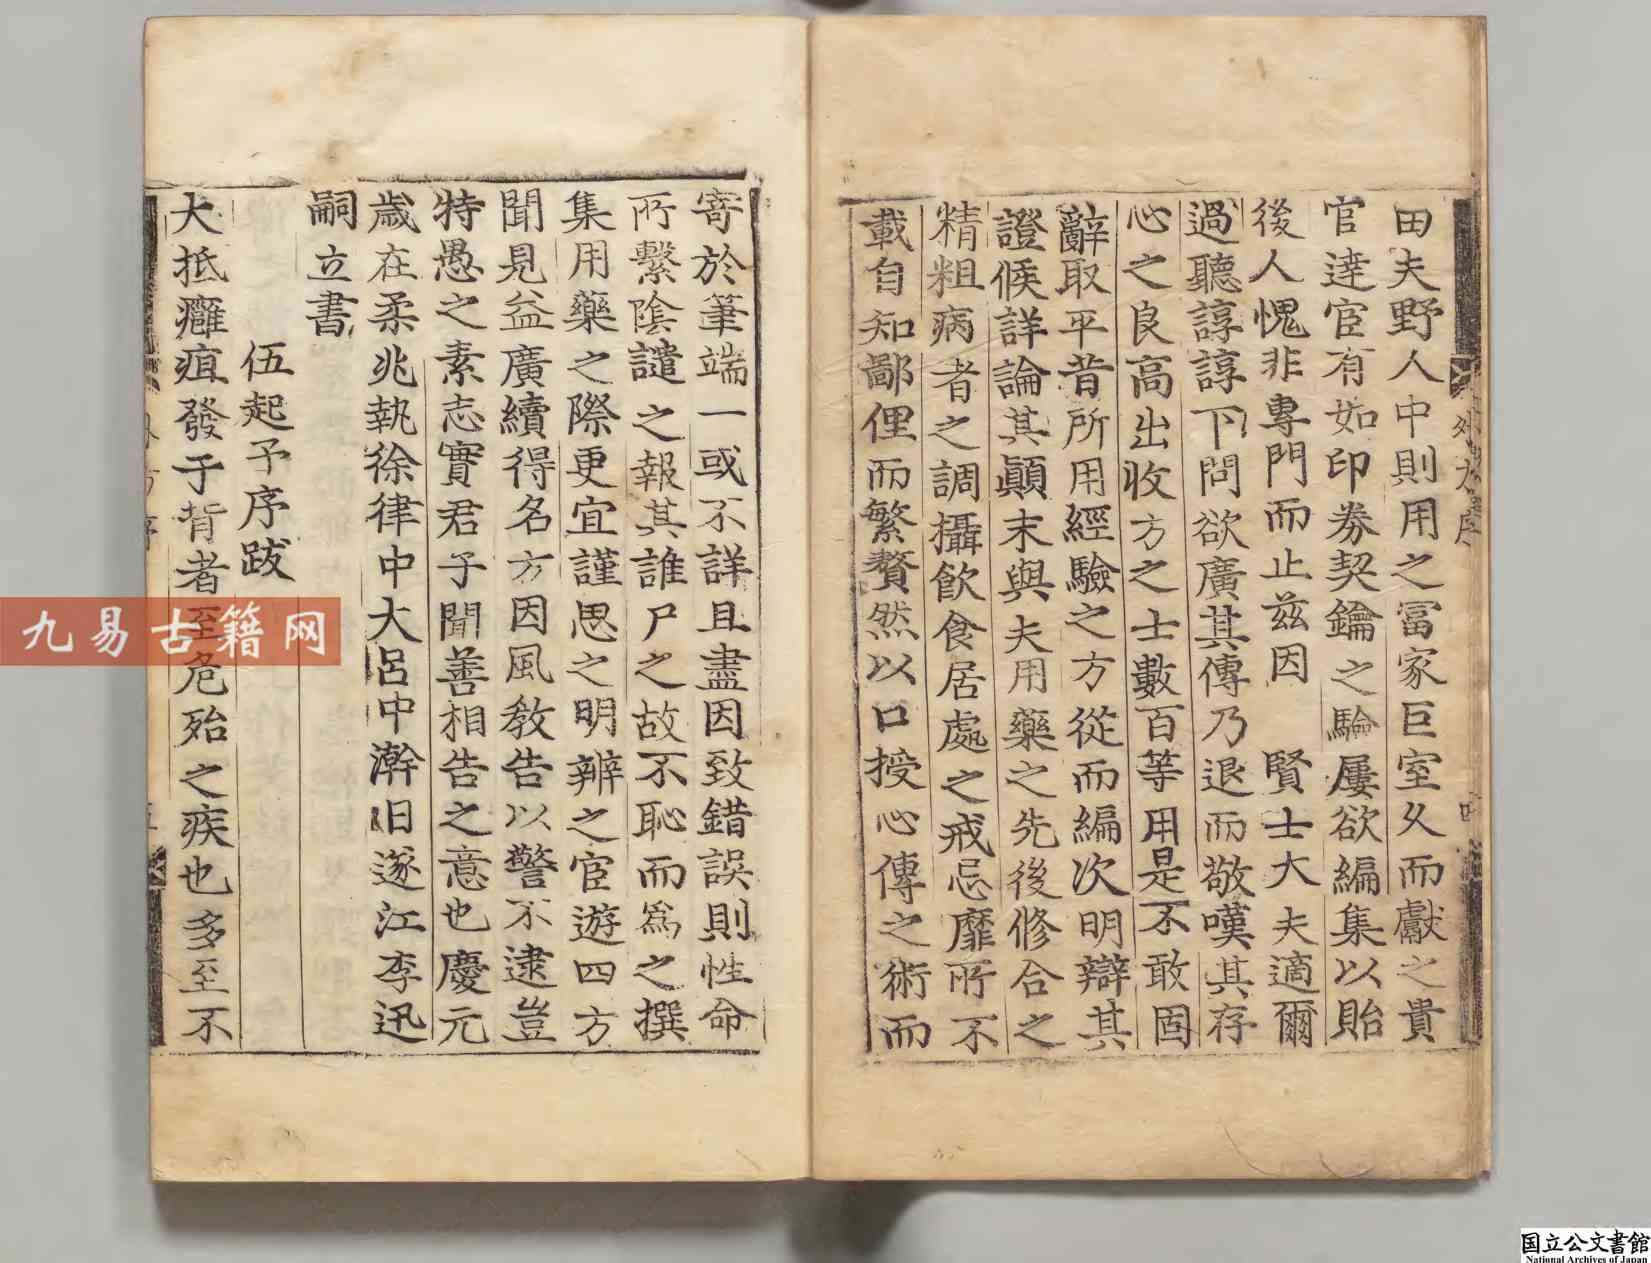 田夫野人中則用之冨家巨室乆而獻之貴
官達宦有如印券契鑰之驗屢欲編集以貽
後人愧非專門而止兹因　賢士大夫適爾
過聽諄諄下問欲廣其傳乃退而敬嘆其存
心之良高出收方之士數百等用是不敢固
辭取平昔所用經驗之方從而編次明辯其
證候詳論其顛末與夫用藥之先後修合之
精粗病者之調攝飲食居處之戒忌靡所不
載自知鄙俚而繁贅然以口授心傳之術而
寄於筆端一或不詳且盡因致錯誤則性命
所繫陰譴之報其誰尸之故不恥而為之撰
集用藥之際更宜謹思之明辨之宦遊四方
聞見益廣續得名方因風教告以警不逮豈
特愚之素志實君子聞善相告之意也慶元
歲在柔兆執徐律中大呂中澣日遂江李迅
嗣立書
伍起予序跋
大抵癰疽發于背者至危殆之疾也多至不
外方序
四
九易古籍网
国立公文書館
National Archives of Japan